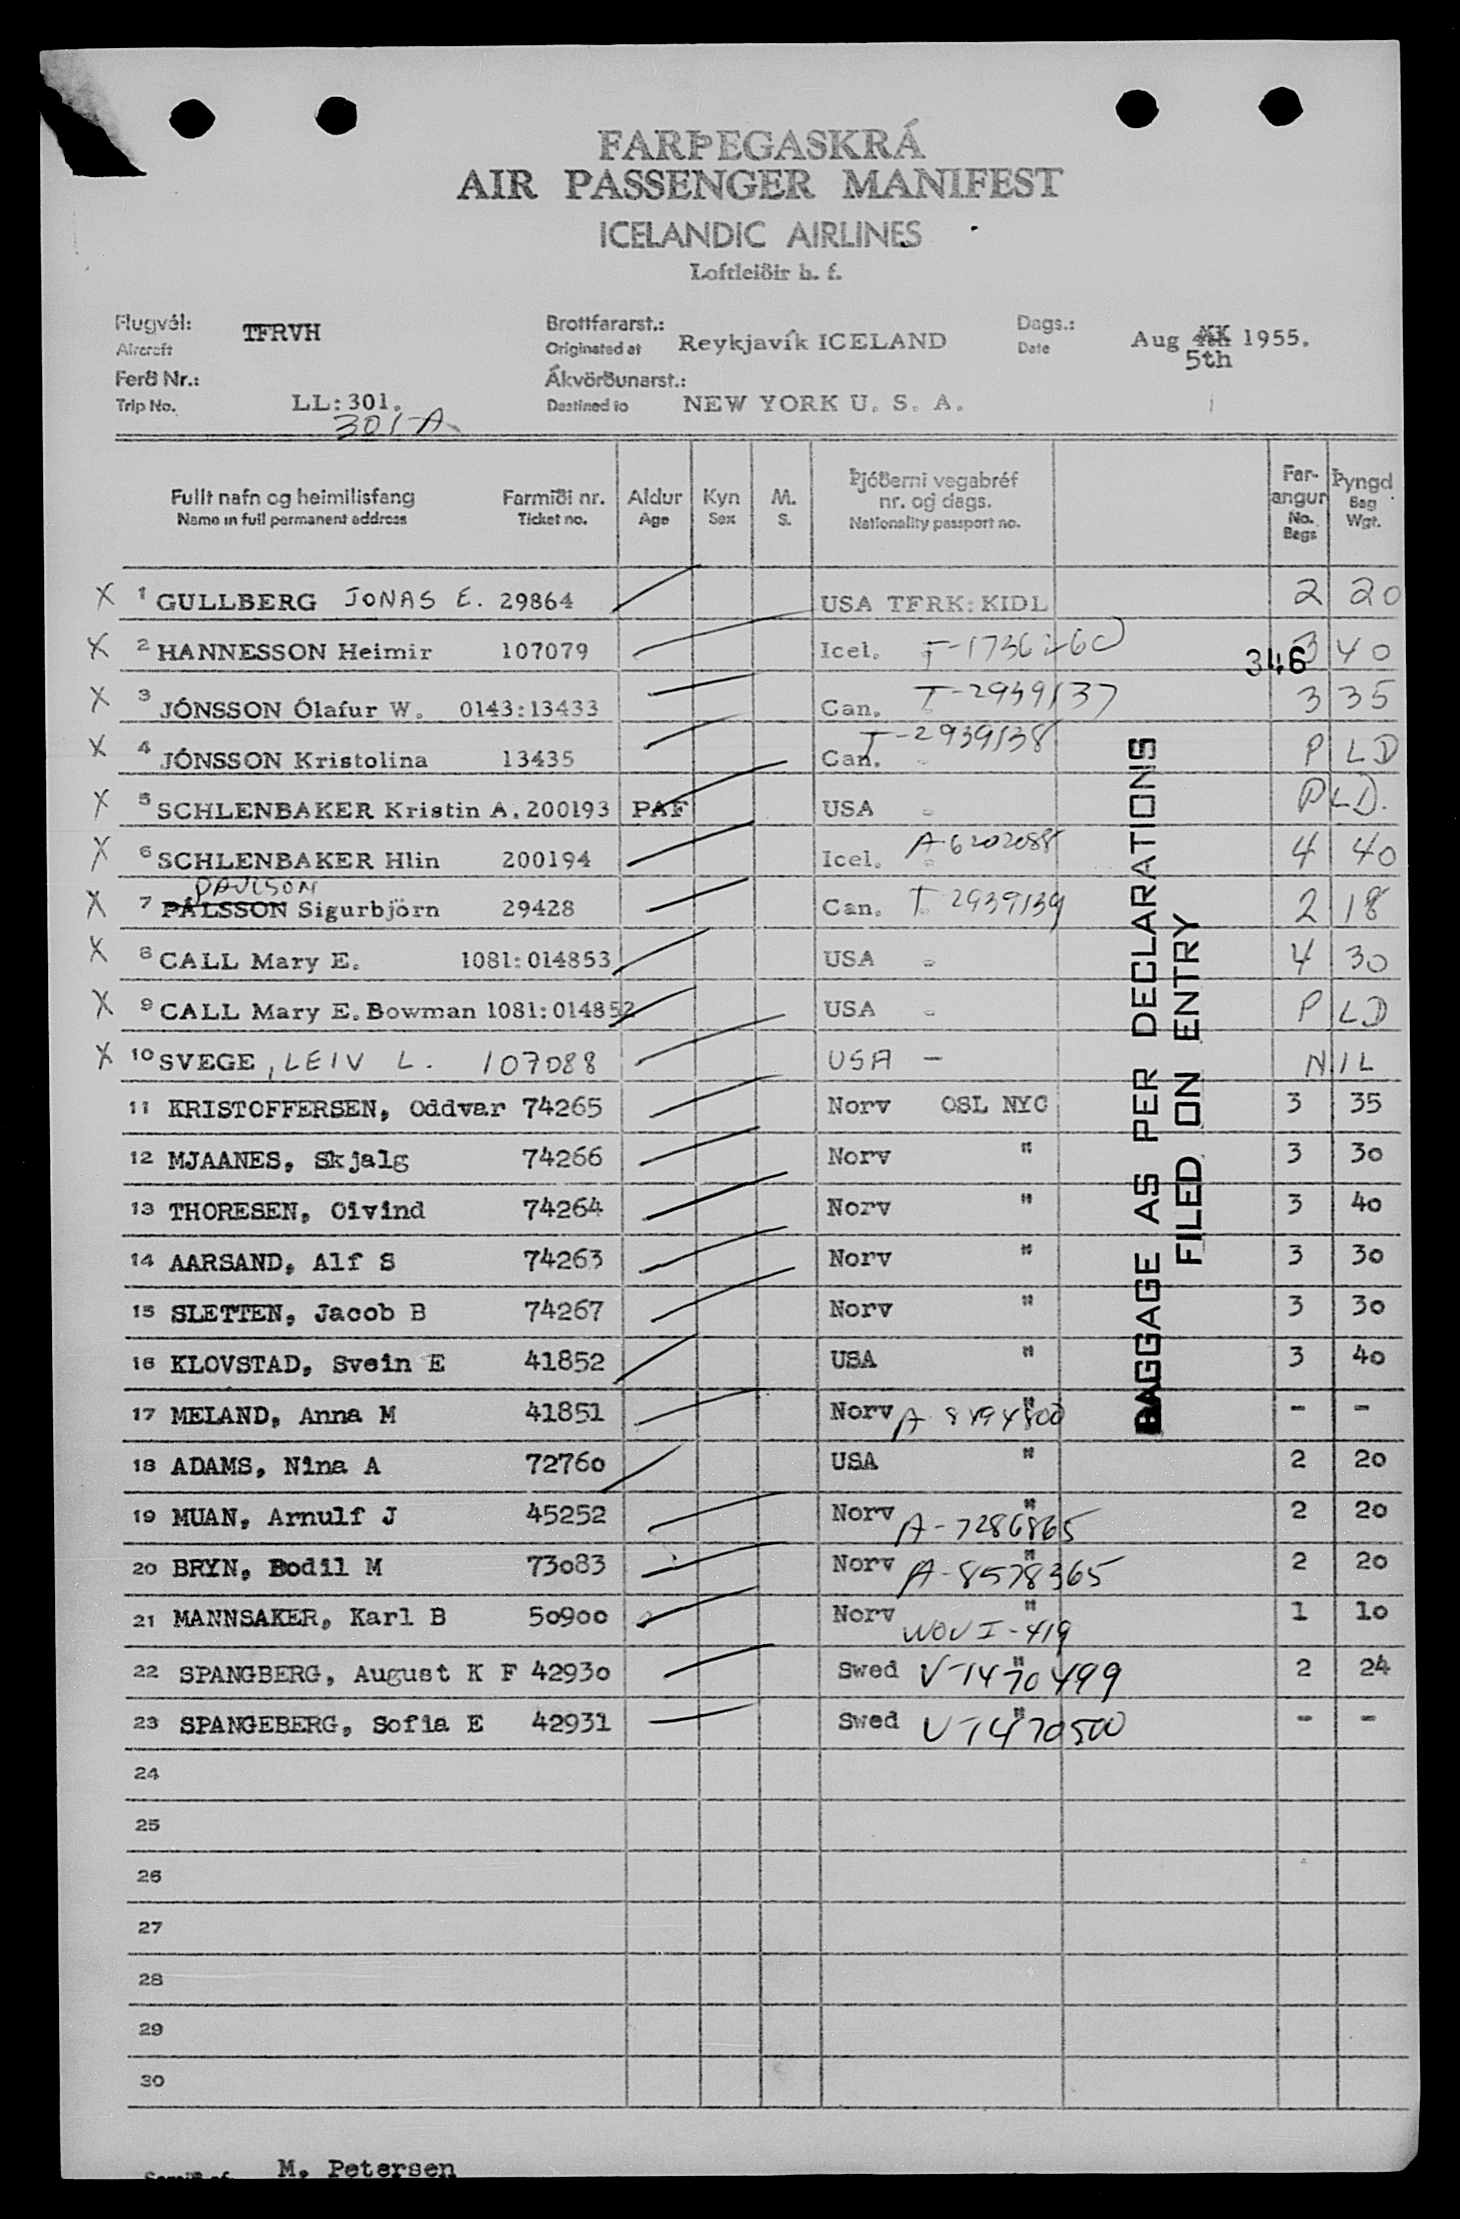 FARÞEGASKRÁ
AIR PASSENGER MANIFEST
ICELANDIC AIRLINES
Loftleiðir h. f.
Flugvél: TFRVH Brottfararst.: Reykjavík ICELAND Dags.: Aug 5th 1955.
Aircraft Originated at Date
Ferð Nr.: Ákvörðunarst.:
Trip No. LL:301. Destined to NEW YORK U. S. A.
301-A
Fullt nafn og heimilisfang Farmiði nr. Aldur Kyn M. Þjóðerni vegabréf nr. og dags. Far-angur Þyngd
Name in full permanent address Ticket no. Age Sex S. Nationality passport no. No. Bags Bag Wgt.
X 1 GULLBERG JONAS E. 29864 USA TFRK:KIDL 2 20
X 2 HANNESSON Heimir 107079 Icel. T-1736260 3 40
346
X 3 JÓNSSON Ólafur W. 0143:13433 Can. T-2939137 3 35
X 4 JÓNSSON Kristolina 13435 Can. T-2939138 P LD
X 5 SCHLENBAKER Kristin A. 200193 PAF USA " PLD.
X 6 SCHLENBAKER Hlin 200194 Icel. A-6202088 4 40
PAULSON
X 7 PÁLSSON Sigurbjörn 29428 Can. T-2939139 2 18
X 8 CALL Mary E. 1081:014853 USA " 4 30
X 9 CALL Mary E. Bowman 1081:014852 USA " P LD
X 10 SVEGE, LEIV L. 107088 USA - NIL
11 KRISTOFFERSEN, Oddvar 74265 Norv OSL NYC 3 35
12 MJAANES, Skjalg 74266 Norv " 3 30
13 THORESEN, Oivind 74264 Norv " 3 40
14 AARSAND, Alf S 74263 Norv " 3 30
15 SLETTEN, Jacob B 74267 Norv " 3 30
16 KLOVSTAD, Svein E 41852 USA " 3 40
17 MELAND, Anna M 41851 Norv " - -
18 ADAMS, Nina A 72760 USA " 2 20
19 MUAN, Arnulf J 45252 Norv " A-7286865 2 20
20 BRYN, Bodil M 73083 Norv " A-8578365 2 20
21 MANNSAKER, Karl B 50900 Norv " 1 10
22 SPANGBERG, August K F 42930 Swed " V-1470499 2 24
23 SPANGEBERG, Sofia E 42931 Swed " V-1470500 - -
24
25
26
27
28
29
30
BAGGAGE AS PER DECLARATIONS
FILED ON ENTRY
M. Petersen